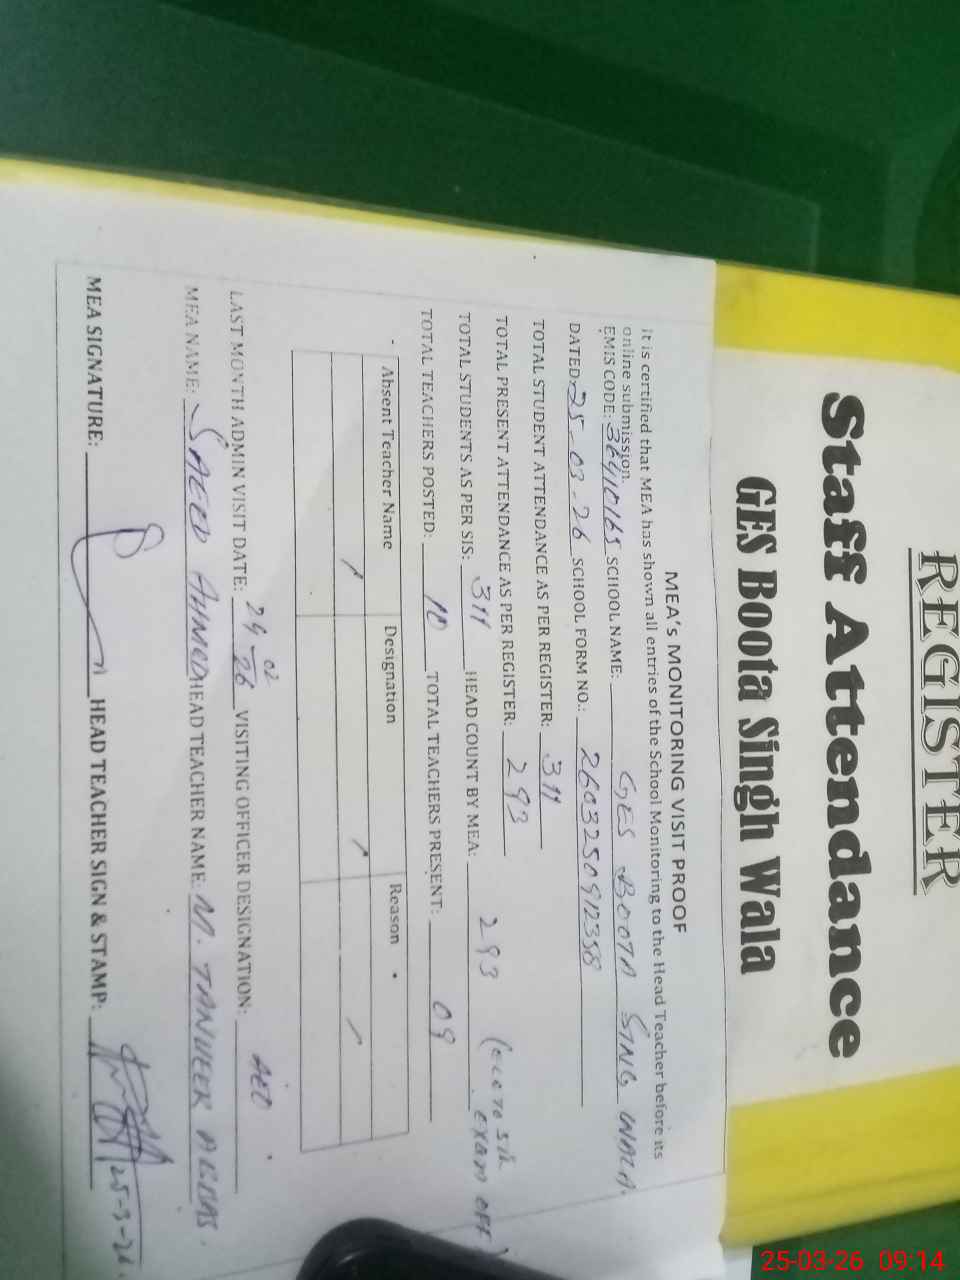 REGISTER
Staff Attendance
GES Boota Singh Wala
MEA's MONITORING VISIT PROOF
It is certified that MEA has shown all entries of the School Monitoring to the Head Teacher before its
online submission.
EMIS CODE: 36410165 SCHOOL NAME: GES BOOTA SING WALA.
DATED: 25-03-26 SCHOOL FORM NO.: 2603250912358
TOTAL STUDENT ATTENDANCE AS PER REGISTER: 311
TOTAL PRESENT ATTENDANCE AS PER REGISTER: 293
TOTAL STUDENTS AS PER SIS: 311 HEAD COUNT BY MEA: 293 (ECE TO 5th EXAM OFF)
TOTAL TEACHERS POSTED: 10 TOTAL TEACHERS PRESENT: 09
Absent Teacher Name Designation Reason
LAST MONTH ADMIN VISIT DATE: 24-02-26 VISITING OFFICER DESIGNATION: AEO
MEA NAME: SAEED AHMED HEAD TEACHER NAME: M. TANVEER ABBAS.
MEA SIGNATURE: HEAD TEACHER SIGN & STAMP: 25-3-26.
25-03-26 09:14